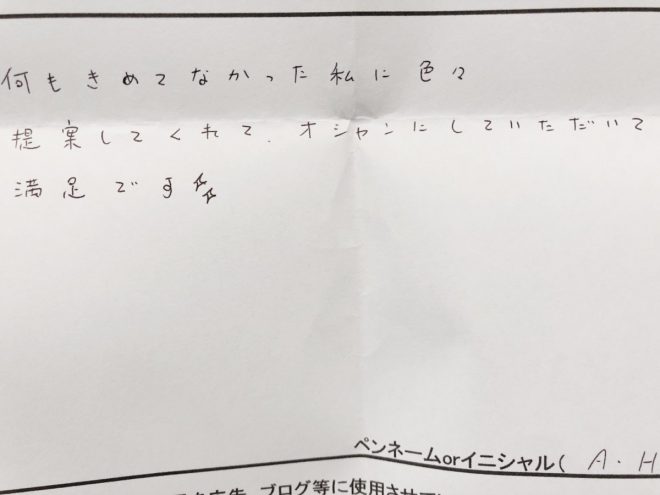 何もきめてなかった私に色々
提案してくれて、オシャンにしていただいて
満足です☆☆
ペンネームorイニシャル( A.H
広告、ブログ等に使用させて